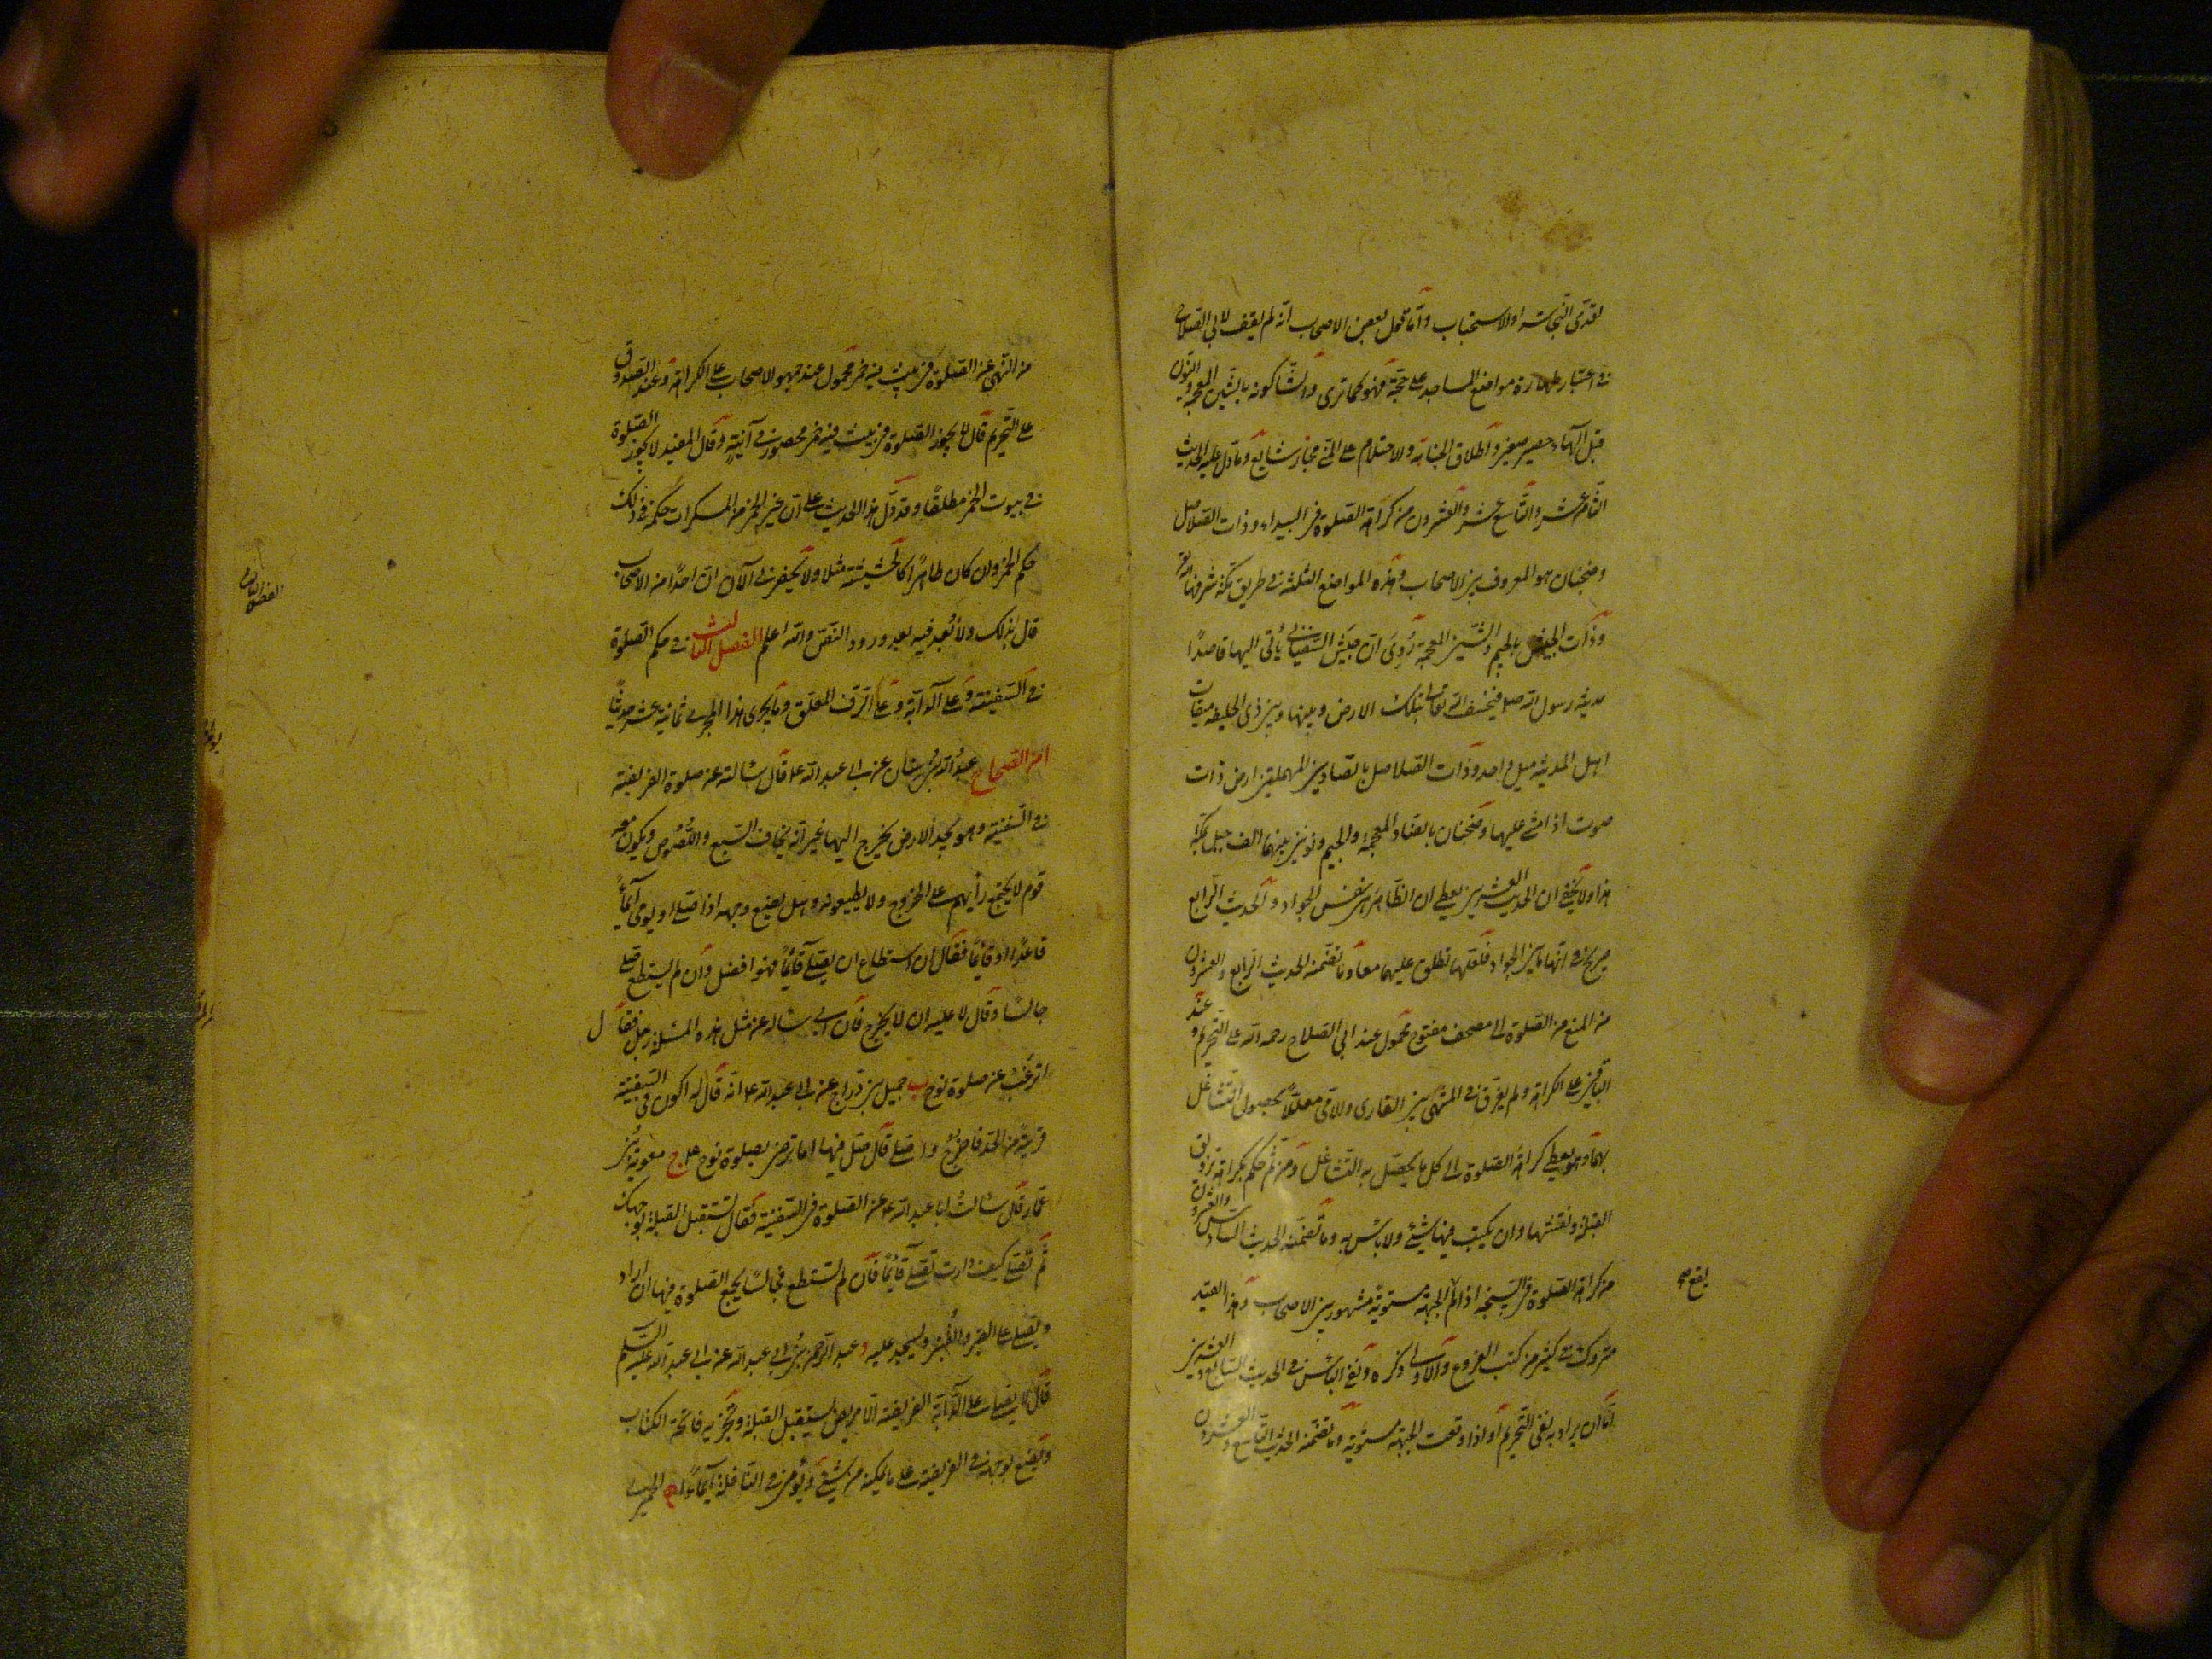 لتعدّى النجاسة او الاستحباب وامّا قول بعض الاصحاب انه لم يقف لابي الصلاح
في اعتبار طهارة مواضع المساجد على حجّة فهو كما ترى والشّاكونه بالشّين المعجمة والنّون
قبل الهاء حصير صغير واطلاق الجنابة والاحتلام على المنى مجاز شايع وما دل عليه الحديث
الثّامن عشر والتّاسع عشر والعشرون من كراهة الصّلوة في البيداء وذات الصلاصل
وضجنان هو المعروف بين الاصحاب وهذه المواضع الثلثة في طريق مكّة شرفها الله
وذات الجيش بالجيم والشّين المعجمة رُوِىَ انّ جيش السّفياني يأتى اليها قاصدًا
مدينة رسول الله ص فيخسف الله تعالى بتلك الارض وبينها وبين ذى الحليفه ميقات
اهل المدينه ميل واحد وذات الصّلاصل بالصّادين المهملتين ارض ذات
صوت اذا مشى عليها وضجنان بالضّاد المعجمة والجيم ونونين بينهما الف جبل بمكّة
هذا ولا يخفى ان الحديث العشرين يعطى ان الظّاهر نفس الجواد والحديث الرّابع
صريح في انّها ما بين الجواد فلعلّها تطلق عليهما معا وما تضمّنه الحديث الرّابع والعشرون
من المنع من الصّلوة الى مصحف مفتوح محمول عند ابي الصّلاح رحمه الله على التّحريم وعند
الباقين على الكراهة ولم يفرّق في المنتهى بين القارى والامّى معلّلًا بحصول التّشاغل
بهما وهو يعطى كراهة الصّلوة الى كل ما يحصل به التّشاغل ومن ثم حكم بكراهة تزويق
القبلة ونقشها وان يكتب فيها شيئ ولا باس به وما تضمّنه الحديث السّادس والعشرون
من كراهة الصّلوة في السّبخة اذا لم الجبهة مستوية مشهور بين الاصحاب وهذا القيد
يقع صح
متروك في كثير من كتب الفروع والاولى ذكره ونفى الباس في الحديث السّابع والعشرين
امّا ان يراد به نفى التّحريم او اذا وقعت الجبهة مستوية وما تضمّنه الحديث التّاسع والعشرون
من النّهى عن الصّلوة في بيت فيه خمر محمول عند جمهور الاصحاب على الكراهة وعند الصّدوق
على التّحريم قال لا يجوز الصّلوة في بيت فيه خمر محصور في آنيةٍ وقال المفيد لا يجوز الصّلوة
في بيوت الخمر مطلقًا وقد دلّ هذا الحديث على انّ غير الخمر من المسكرات حكمه في ذلك
حكم الخمر وان كان طاهرًا كالحشيشة مثلا ولا يحضرني الآن انّ احدًا من الاصحاب
قال بذلك ولا بُعد فيه بعد ورود النّصّ والله اعلم الفصل الثالث في حكم الصّلوة
في السّفينة وعلى الدّابّة وعلى الرّفّ المعلّق وما يجرى هذا المجرى ثمانية عشر حديثًا
ا من الصّحاح عبد الله بن سنان عن ابى عبد الله ع قال سالته عن صلوة الفريضة
في السّفينة وهو يجد الارض يخرج اليها غير انّه يخاف السّبع واللّصوص ويكون معه
قوم لا يجتمع رأيهم على الخروج ولا يطيعونه وهل يضع وجهه اذا صلّى او يومى ايماءً
قاعدًا او قائمًا فقال ان استطاع ان يصلّى قائمًا فهو افضل وان لم يستطع صلّى
جالسًا وقال لا عليه ان لا يخرج فان ابي ساله عن مثل هذه المسئلة رجل فقال
اترغب عن صلوة نوح ب جميل بن درّاج عن ابى عبد الله ع انّه قال له اكون فى السّفينة
قريبةً من الجدّ فاخرج واصلّى قال صلّ فيها اما ترضى بصلوة نوح ع ج معوية بن
عمّار قال سالت ابا عبد الله ع عن الصّلوة فى السّفينة فقال تستقبل القبلة بوجهك
ثم تصلّى كيف دارت تصلّى قائمًا فان لم تستطع فجالسًا يجمع الصّلوة فيها ان اراد
ويصلّى على القير والقُفر ويسجد عليه د عبد الرّحمن بن ابى عبد الله عن ابى عبد الله عليه السّلم
قال لا يصلّى على الدّابّة الفريضة الّا مريض يستقبل القبلة وتجزيه فاتحة الكتاب
ويضع بوجهه في الفريضة على ما امكنه من شيئ ويؤمى في النّافلة ايماءً ه الحميرى
الفصل الثالث